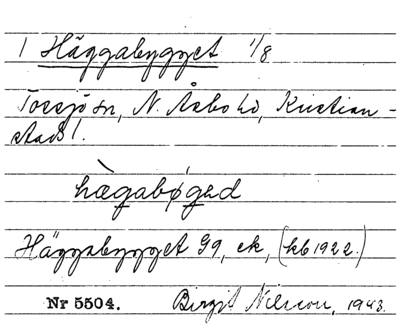 1 Häggabygget 1/8
Tossjö sn, N. Åsbo hd, Kristian-
stads l.
hægabøgəd
Häggabygget Gg, ek, (kb 1922.)
Nr 5504. Birgit Nilsson, 1943.